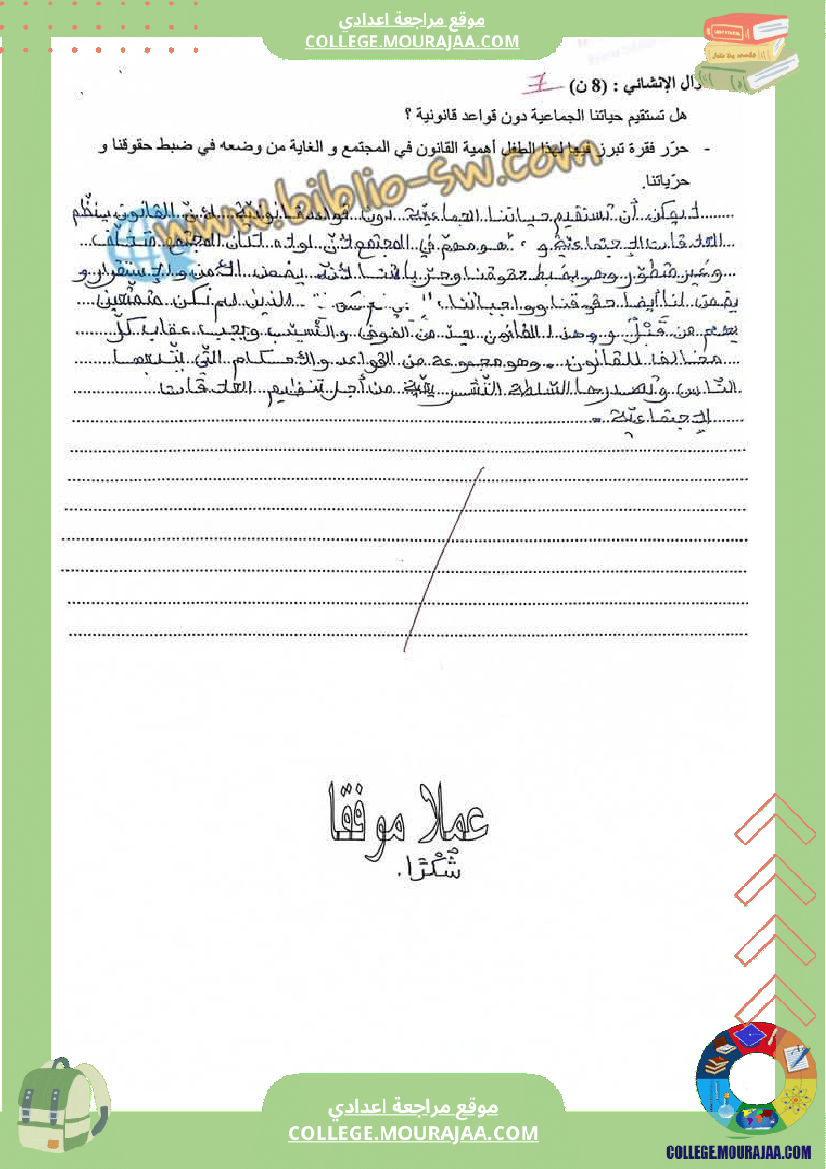 موقع مراجعة اعدادي
COLLEGE.MOURAJAA.COM
ـؤال الإنشائي : (8 ن) 7
هل تستقيم حياتنا الجماعية دون قواعد قانونية ؟
- حرّر فقرة تبرز فيها لهذا الطفل أهمية القانون في المجتمع و الغاية من وضعه في ضبط حقوقنا و
حرّياتنا.
www.biblio-sw.com
لا يمكن أن تستقيم حياتنا الجماعيّة دون قواعد قانونيّة لأنّ القانون ينظّم
العلاقات الإجتماعيّة و هو مهمّ في المجتمع لأنّ لولاه لكان المجتمع متخلّف
وغير متطوّر وهو يضبط حقوقنا وحرّياتنا لأنّه يضمن الأمن والإستقرار و
يضمن لنا أيضا حقوقنا وواجباتنا الذين لم نكن متمتّعين
بهم من قبل وهذا القانون يحدّ من الفوضى والتّسيّب ويجب عقاب كلّ
مخالف للقانون وهو مجموعة من القواعد والأحكام الّتي يتّبعها
النّاس وتصدرها السّلطة التّشريعيّة من أجل تنظيم العلاقات
الإجتماعيّة.
عملا موفقا
شكرًا.
موقع مراجعة اعدادي
COLLEGE.MOURAJAA.COM
COLLEGE.MOURAJAA.COM